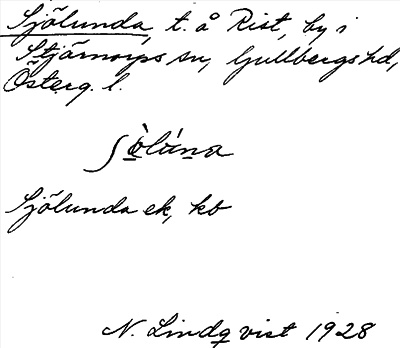 Sjölunda, t. å Rist, by i
Stjärnorps sn, Gullbergs hd,
Österg. l.
ʃö̀lúna
Sjölunda ek, kb
N. Lindqvist 1928